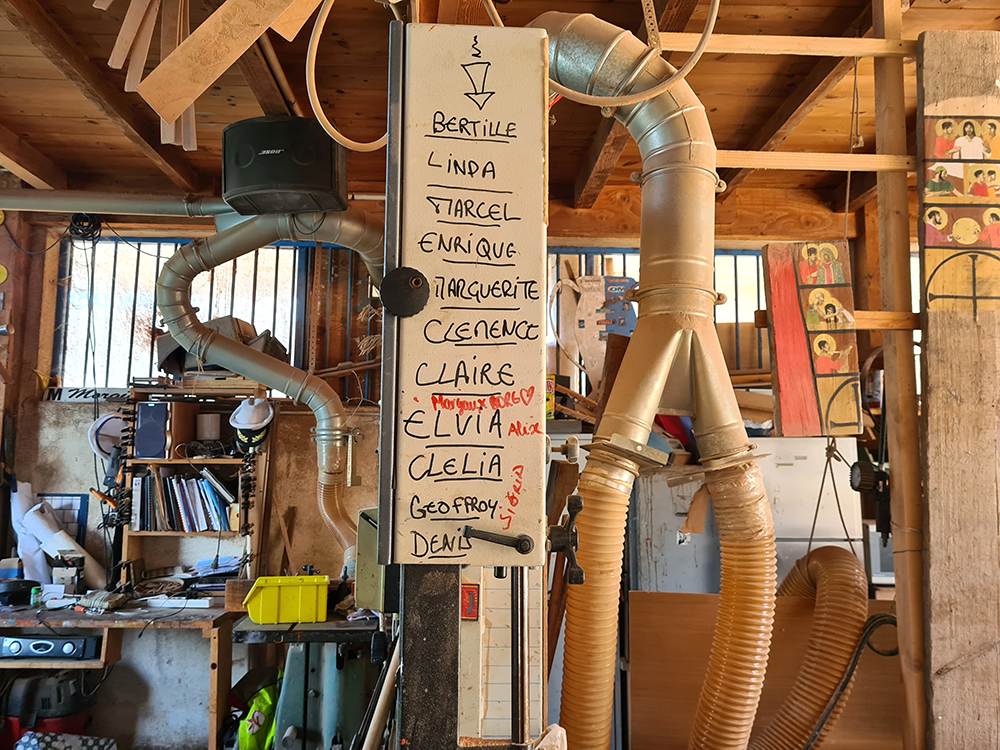 BERTILLE
LINDA
MARCEL
ENRIQUE
MARGUERITE
CLEMENCE
CLAIRE
ELVIA Alix
CLELIA
GEOFFROY
DENIS
BOSE